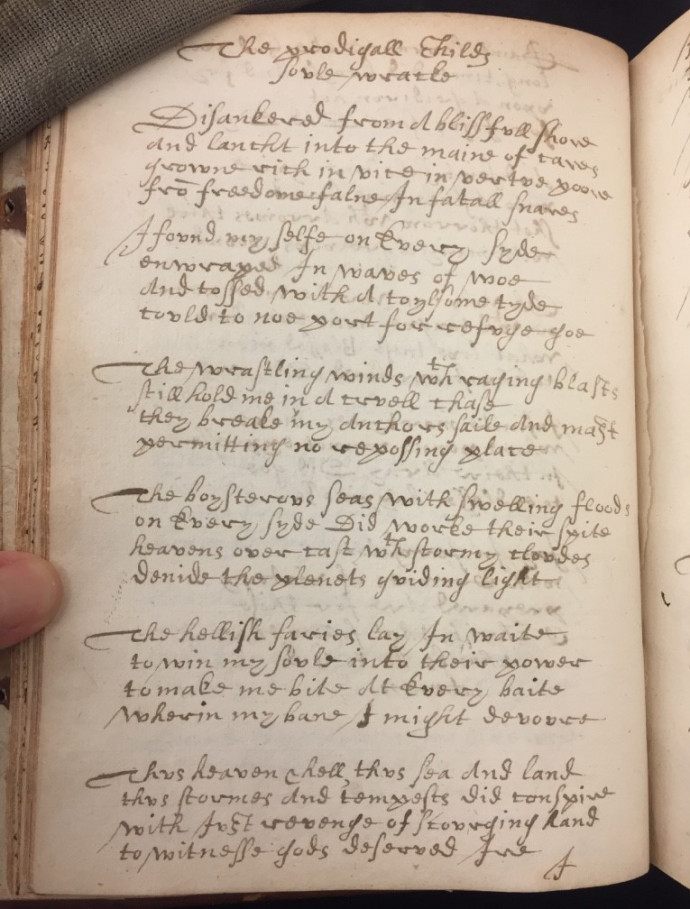 The prodigall Childs
sovle wracke
Disankered from A blissfull shore
and lancht into the maine of cares
growne rich in vice in vertve poore
frō freedome falne In fatall snares
I fovnd my selfe on Every syde
enwraped In waves of woe
And tossed with A toylsome tyde
covld to noe port for refvge goe
The wrastling winds wth raging blasts
still hold me in A crvell chase
they breake my Anchors saile And mast
permitting no repossing place
The boysterovs seas with swelling floods
on Every syde Did worke their spite
heavens over cast wth stormy clovdes
denide the plenets gviding light
The hellish fvries lay In waite
to win my sovle into their power
to make me bite At Every baite
wherin my bane I might devovre
Thvs heaven & hell, thvs sea And land
thvs stormes And tempests did conspire
with Ivst revenge of scovrging hand
to witnesse gods deserved Ire
I